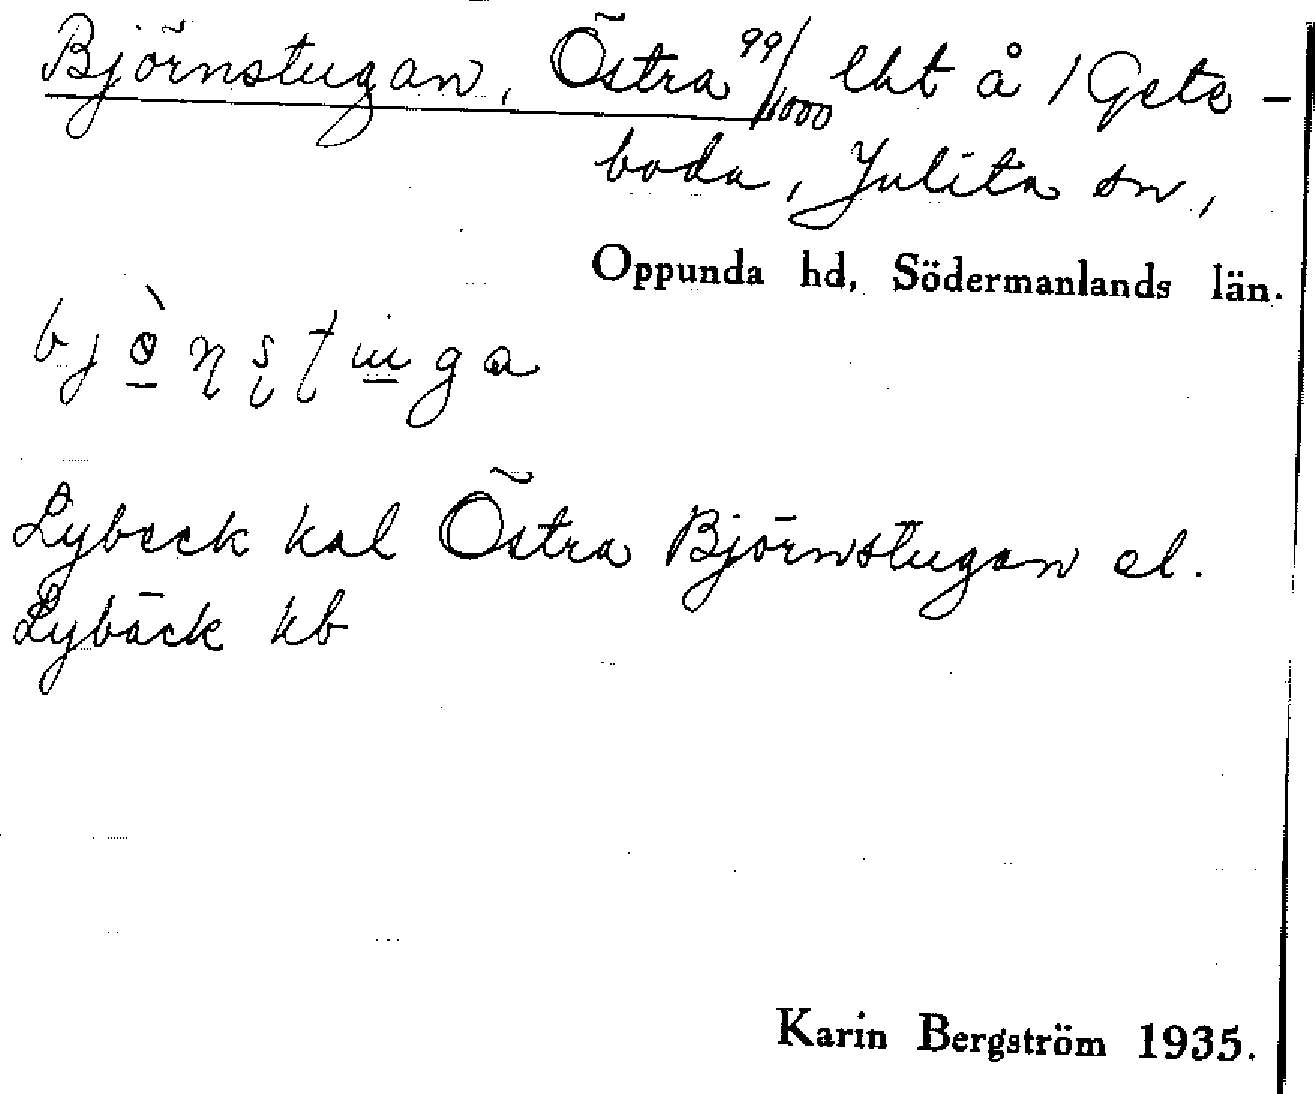 Björnstugan, Östra 99/1000 lht å 1 Gete-
boda, Julita sn,
Oppunda hd, Södermanlands län.
Lybeck kal Östra Björnstugan el.
Lybäck kb
Karin Bergström 1935.